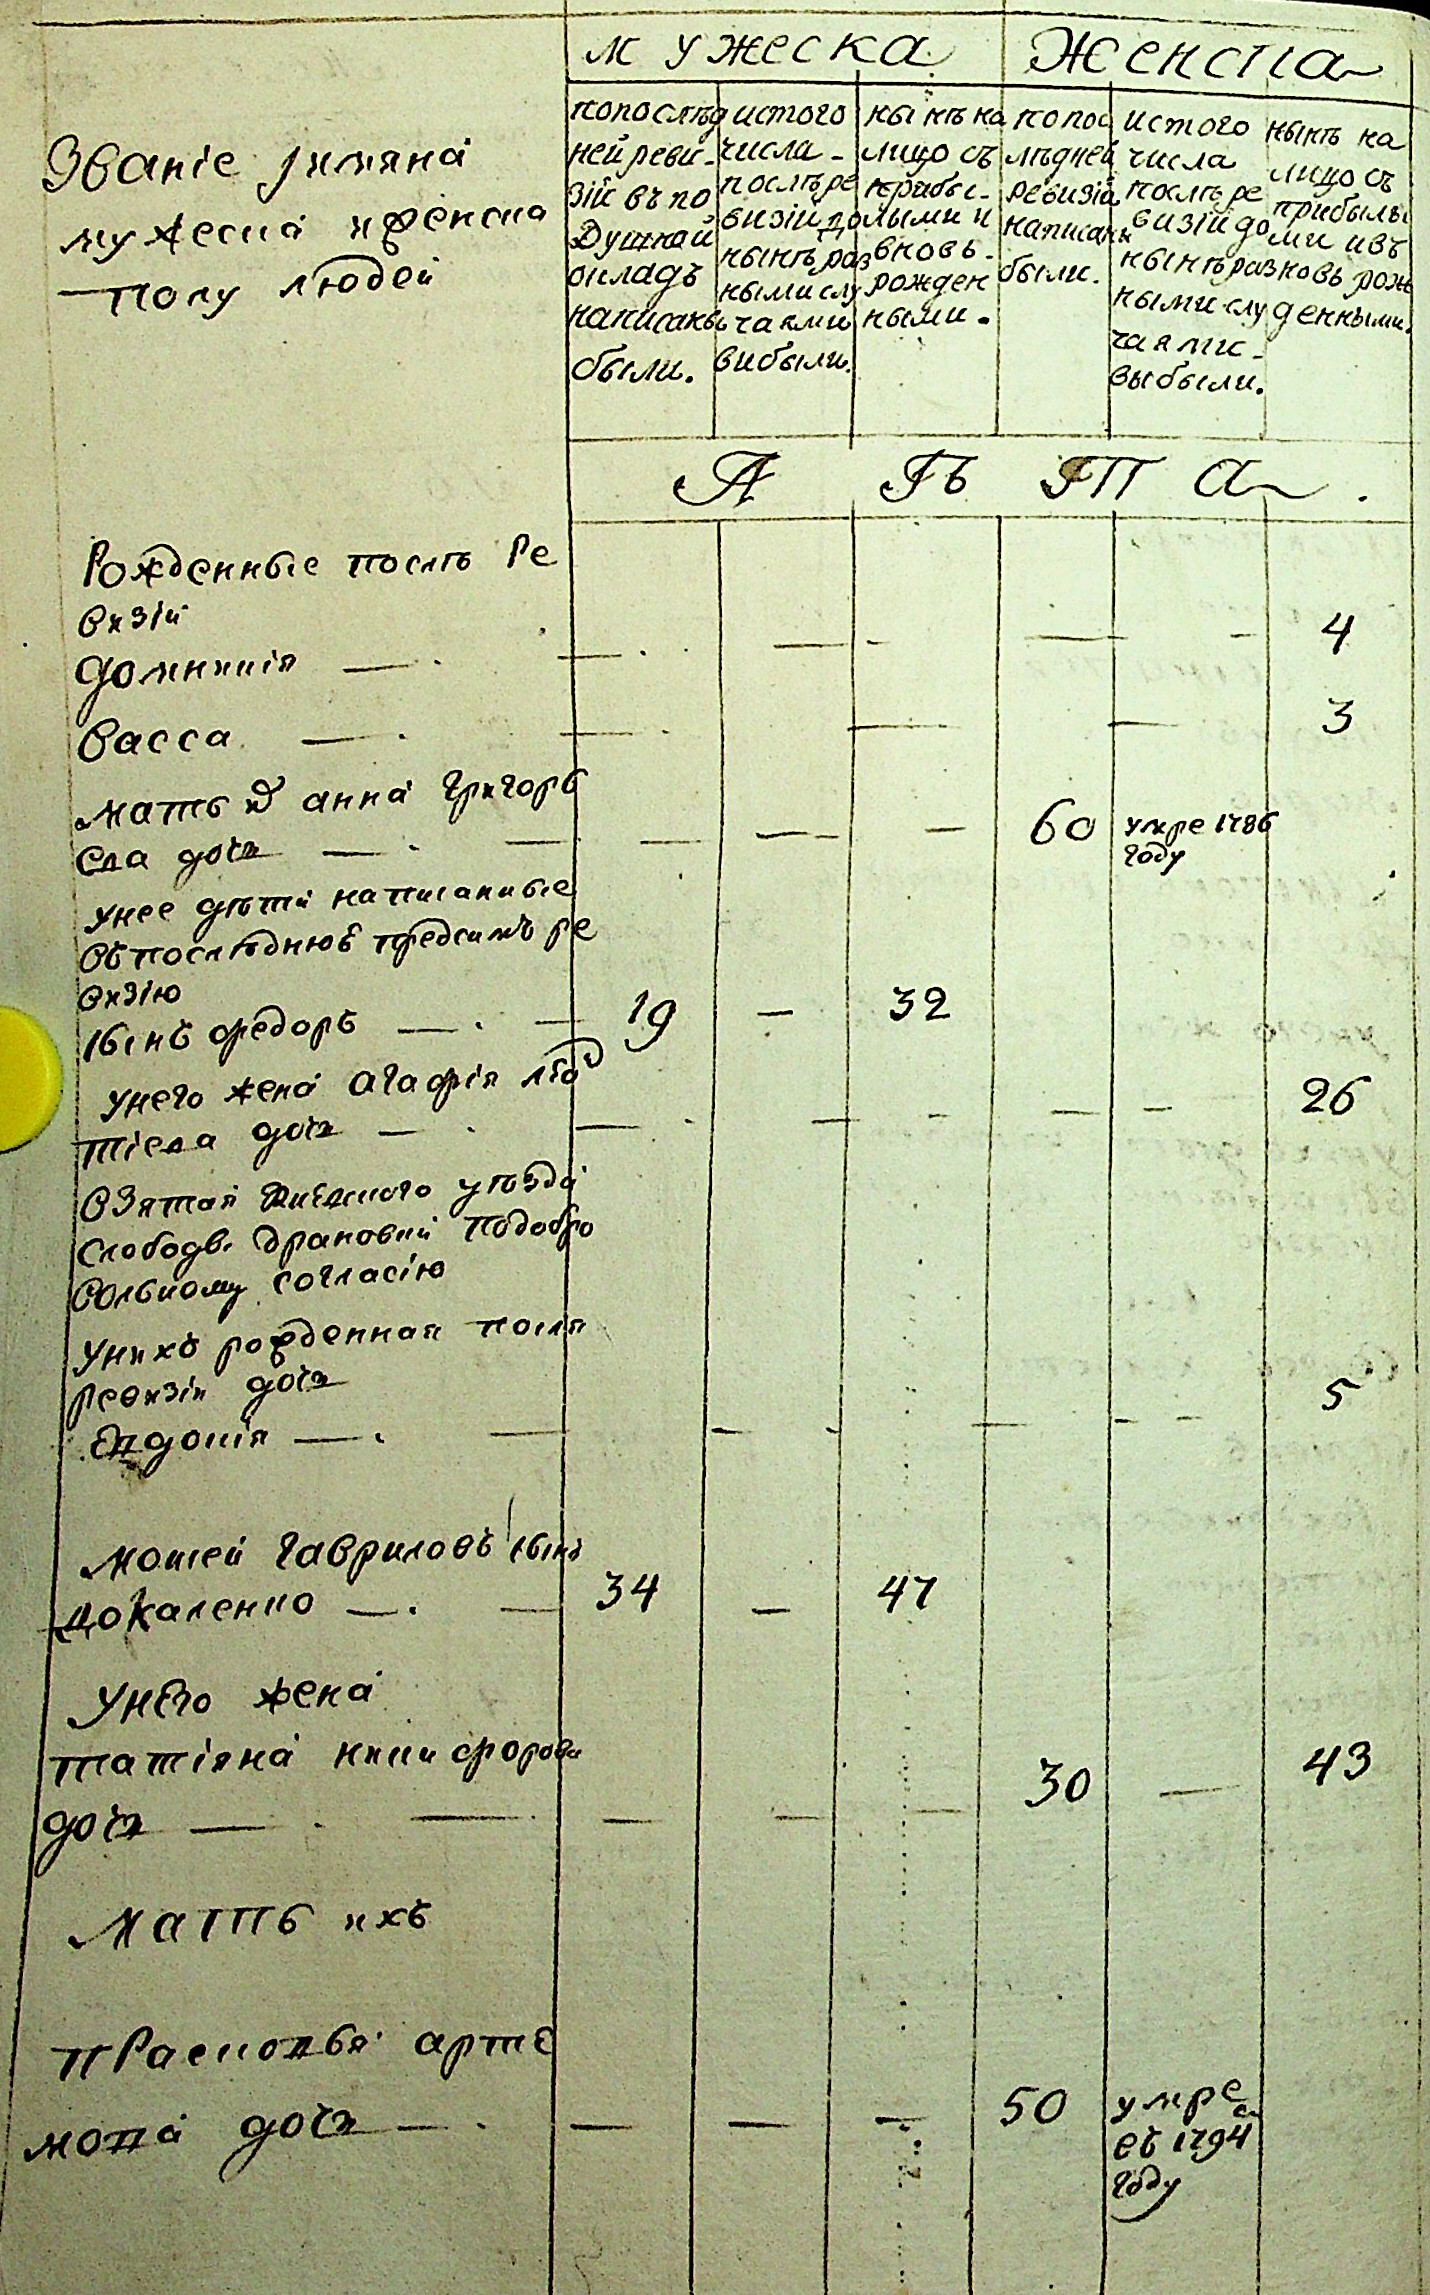 мужеска женска
Званіе иимяна
мужеска иженска
полу людей
попослѣд
ней реви-
зій въ по
душной
окладъ
написаны
были.
истого
числа -
послѣ ре
визій до
нынѣ раз
ными слу
чаями
вибыли.
нынѣ на
лицо съ
прибы-
лыми и
вновь-
рожден
ными.
попос
лѣдней
ревизій
написаны
были.
истого
числа
послѣ ре
визій до
нынѣ раз
ными слу
чаями-
выбыли.
нынѣ на
лицо съ
прибылы
ми ивъ
новь рож
денными.
Л ѣ т а .
Рожденные послѣ Ре
визіи
Домникія — . 4
Васса — . 3
мать ихъ анна Григорь
ева дочь — . 60 умре 1786
году
унее дѣти написанные
въпослѣднюю предсимъ ре
визію
сынъ федоръ — . 19 — 32
унего жена Агафія
тіева дочь — . 26
Взятая Кіевского уѣзда
слободы подобро
вольному согласію
унихъ рожденная послѣ
ревизіи дочь
Евдокія — . 5
Мокей Гавриловъ сынъ
Цокаленко — . 34 — 47
Унего жена
татіяна никифорова
дочь — . 30 — 43
Мать ихъ
Прасковья арте
мова дочь — . 50 умре
въ 1794
году